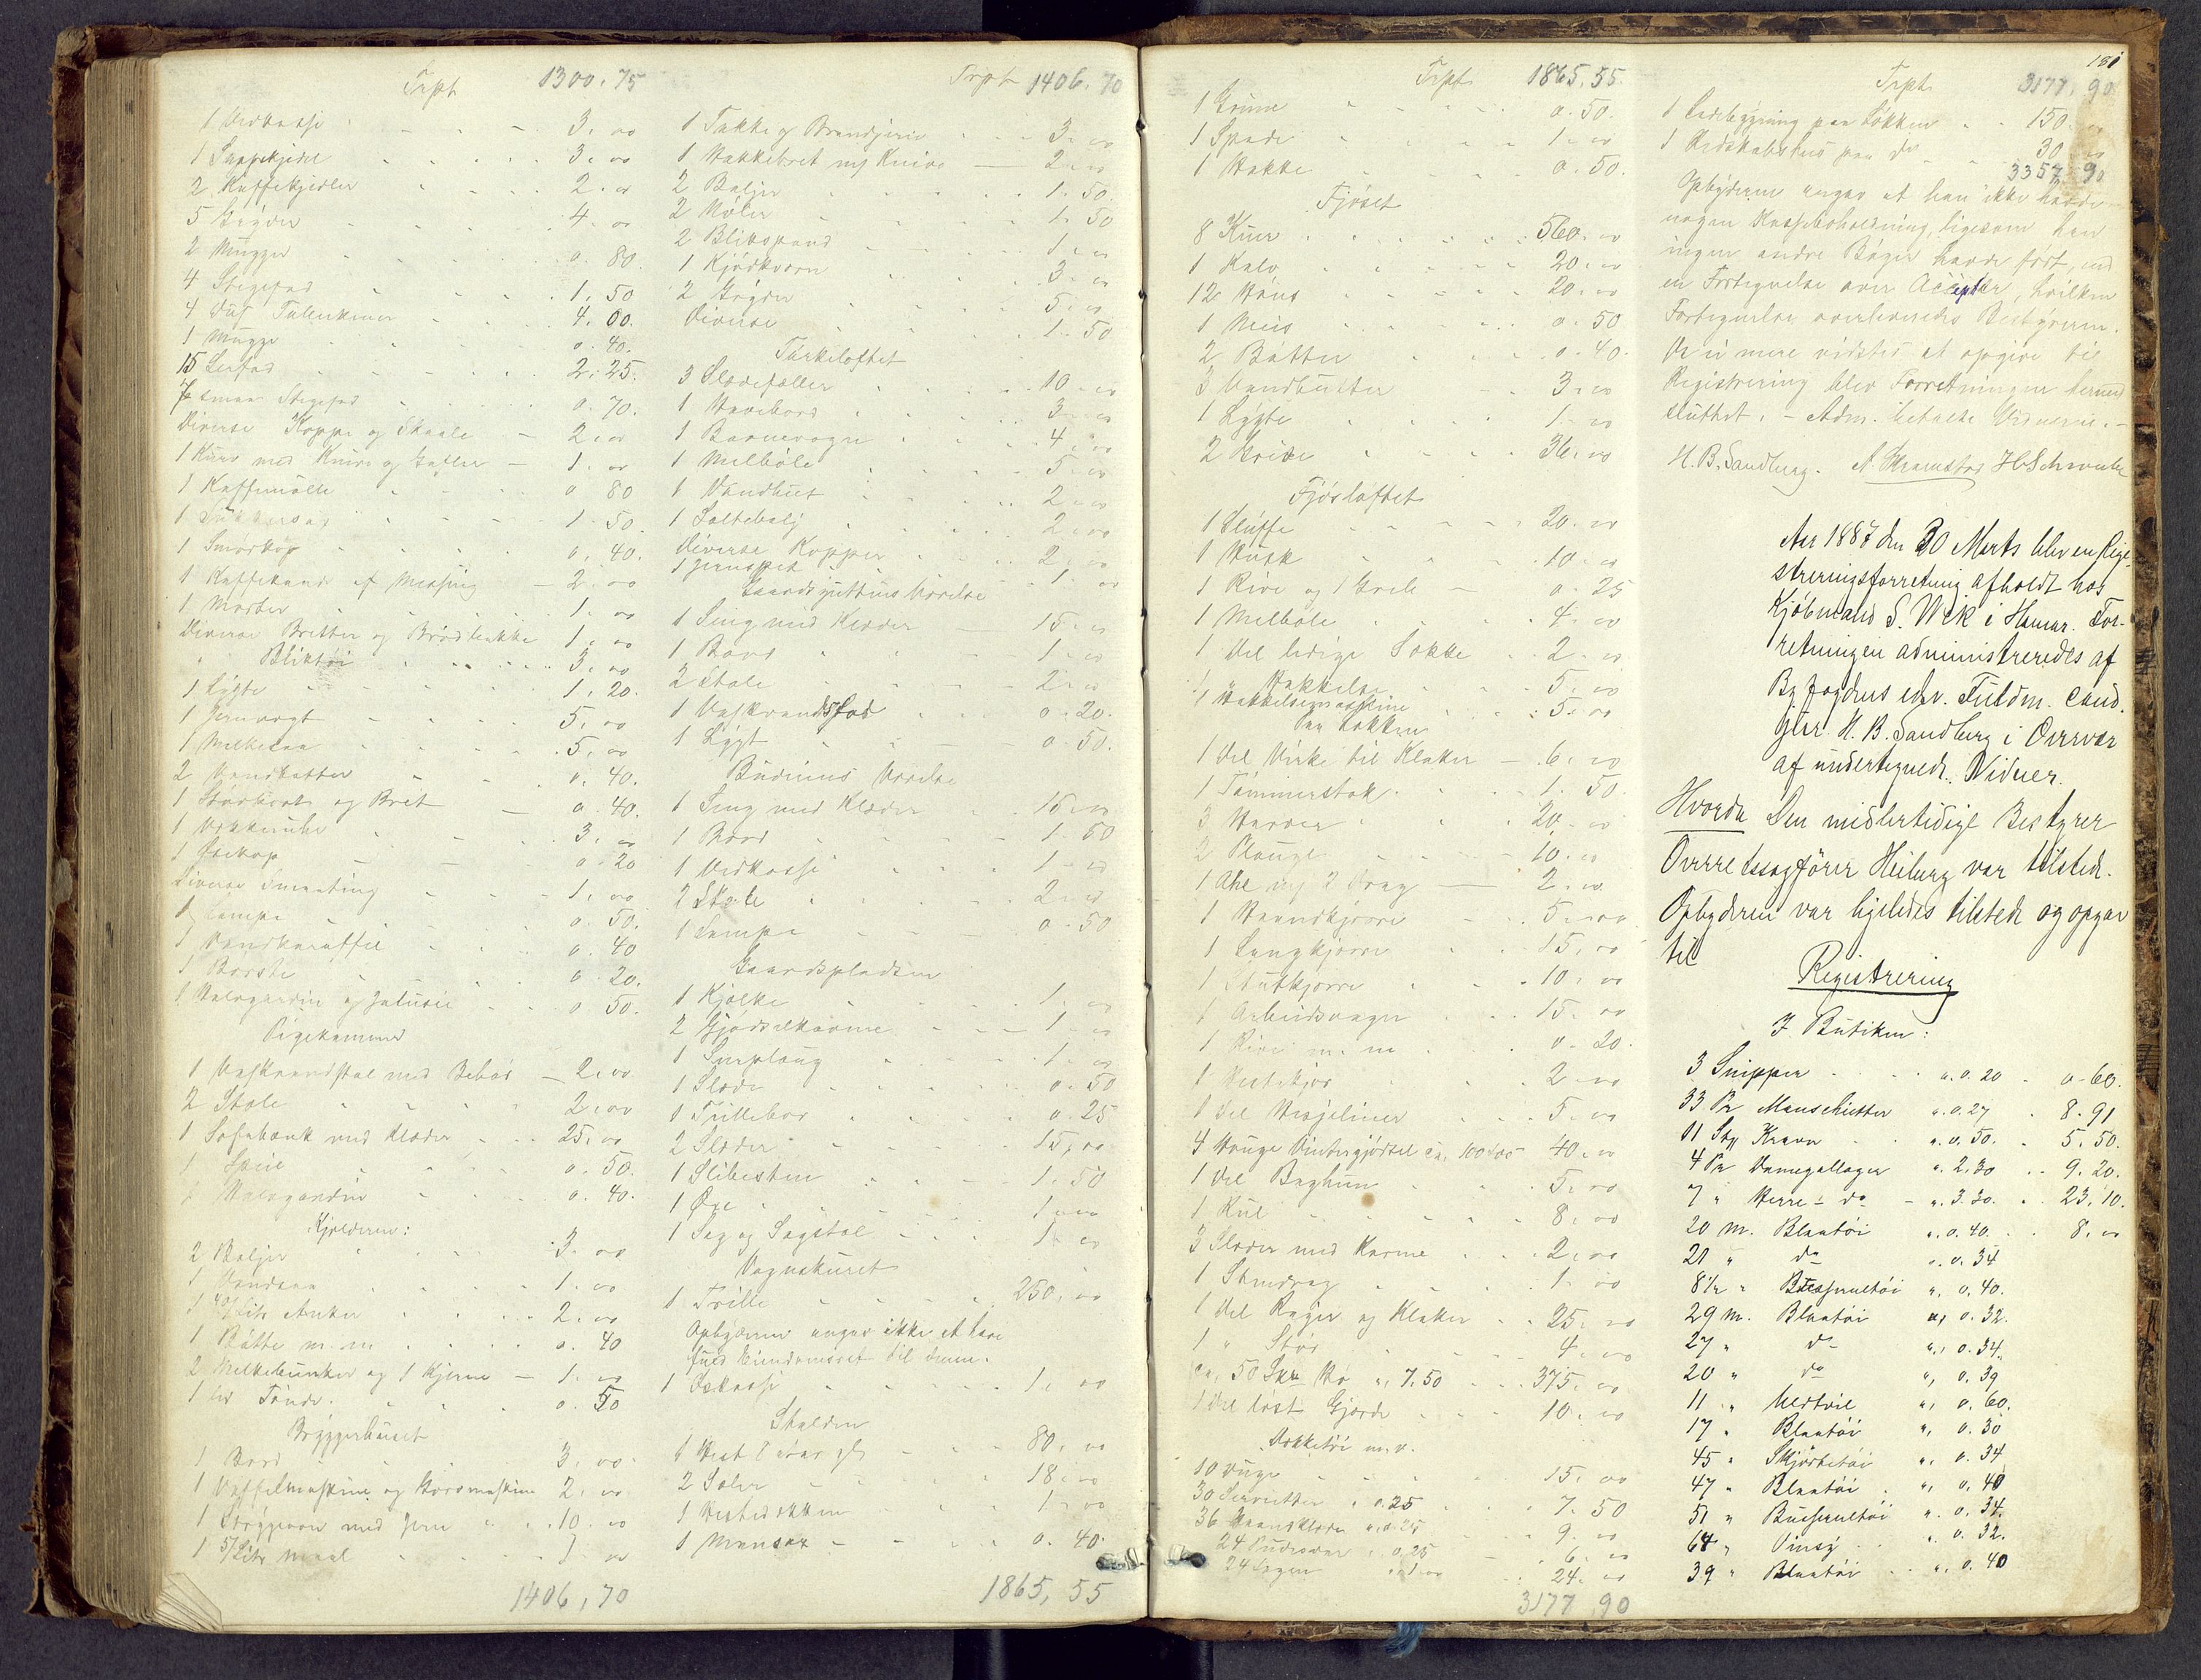 Trpt 1300.75
1 Vedkasse 3.00
1 Suppekjedel 3.00
2 Kaffekjedler 2.00
5 Gryder 4.00
2 Mugger 0.80
4 Stegefad 1.50
4 Dus Talerkener 4.00.
1 Mugge 0.40.
15 Lerfad 2.25.
7 smaa Stegefad 0.70.
Diverse Koppe og Skaale - 2.00
1 Kurv med Knive og Gafler - 1.00
1 Kaffemølle 0.80
1 1.50.
1 Smørkop 0.40.
1 Kaffekande af Messing - 2.00
1 Morter 1.00
Diverse Bretter og Brødbakke 1.00
" Bliktøi 3.00
1 Lygte 1.20.
1 Jernvegt 5.00
1 5.00
2 Vandbøtter 0.40.
1 og Bret 0.40.
1 Vækkeruhr 3.00
1 0.20
Diverse Smaating 1.00
1 Lampe 0.50.
1 Vandkaraffel 0.40
1 Børste 0.20.
1 Halvgardin og Jalusie 0.50.
Pigekammer
1 Vaskevandsstel med Behør - 2.00
2 Stole 2.00
1 Sofabænk med Klæder 25.00
1 Speil 0.50.
1 Halvgardin 0.40.
Kjelderen:
2 Baljer 3.00
1 1.00
1 40/Litr Anker 2.00
1 Bøtte m.m. 0.40
2 Melkebunker og 1 Kjerne - 1.00
1 Tønde. 0.50
Bryggerhuset
1 Bord 3.00
1 Vaffelmaskine og 2.00
1 Strygeovn med Jern 10.00
1 5/Litr Maal 1.00
1406,70
Trpt 1406.70
1 Takke og Brændejern 3.00
1 Hakkebret m/ Knive - 2.00
2 Baljer 1.50.
2 1.50
2 Blikspand 1.00
1 Kjødkværn 3.00
2 Gryder 5.00
Diverse 1.50
Tørkeloftet
3 Slædefæller 10.00
1 Havebord 3.00
1 Barnevogn 4.00
1 Melbøle 5.00
1 Vandhus 2.00
1 Saltebalj 2.00
Diverse Kopper 2.00
1 Jernspet 1.00
Gaardsguttens Værelse
1 Seng med Klæder - 15.00
1 Bord 1.00
2 Stole 2.00
1 Vaskevandsfad 0.20.
1 Lygt 0.50.
Budeiens Værelse
1 Seng med Klæder 15.00
1 Bord 1.50
1 Vedkasse 1.00
2 Stole 2.00
1 Lampe 0.50
Gaardspladsen
1 Kjælke 1.00
2 Gjødselkarme 1.00
1 Sneploug 1.00
1 Slæde 0.50
1 Trillebør 0.25
2 Slæder 15.00
1 Slibesten 1.50
1 Øxe 1.00
1 Sag og Sagstol 1.00
Vognskuret
1 Trille 250.00
Opbyderen angav ikke at have
fuld Eiendomsret til denne.
1 1.00
Stalden
1 Hest 8 aar gl. 80.00
2 Seler 18.00
1 Hestedækken 1.00
1 0.40.
1865,55
Trpt 1865.55.
1 Grime 0.50.
1 Spade 1.00
1 Hakke 0.50.
Fjøset
8 Kuer 560.00
1 Kalv 20.00
12 Høns 20.00
1 Meis 0.50
2 Bøtter 0.40.
3 Vandbøtter 3.00
1 Lygte 1.00
2 Grise 36.00
Fjøsloftet
1 Sluffe 20.00
1 Husk 10.00
1 Rive og 1 Greb - 0.25
1 Melbøle 4.00
1 Del ledige Sække 2.00
1 " Hakkelse 5.00
1 Hakkelsesmaskine 5.00
Paa Løkken
1 Del Virke til Kloker - 6.00
1 Tømmerstok 1.50.
3 Harver 20.00
2 Plouge 10.00
1 Ahl m/ 2 Drag - 2.00
1 Haandkjærre 5.00
1 Langkjærre 15.00
1 Stutkjærre 10.00
1 Arbeidsvogn 15.00
1 Rive m.m 0.20.
1 2.00
1 Del Hesjeliner 5.00
4 Hauge Vintergjødsel ca. 100 Læs 40.00
1 Del Baghun 5.00
1 Kul 8.00
3 Slæder med Karme 2.00
1 Stendrag 1.00
1 Del Rajer og Kloker 25.00
1 " Stør 4.00
ca. 50 Skp Hø a. 7.50 375.00
1 Del løst Gjærde 10.00
Dækketøi m.v.
10 Duge 15.00
30 Servietter a 0.25 7.50
36 Haandklæder a. 0.25 9.00
24 Pudevaar a 0.25 6.00
24 Lagen a 1.00 24.00
3177.90
181
Trpt 3177.90
1 Ladebygning paa Løkken 150.00
1 Redskabshus paa do 30.00
3357.90
Opbyderen angav at han ikke havde
nogen Kassebeholdning, ligesom han
ingen andre Bøger havde ført, end
en Fortegnelse over Accepter, hvilken
Fortegnelse overleveredes Bestyreren.
Da ei mere vidstes at opgive til
Registrering blev Forretningen hermed
sluttet. - Adm. betalte Vidnerne. -
H. B. Sandberg. A. Skramstad H. Schwenke
Aar 1887 den 30 Marts blev en Regi-
streringsforretning afholdt hos
Kjøbmand S. Wek i Hamar. For-
retningen administreredes af
Byfogdens edsv. Fuldm. cand.
jur. H. B. Sandberg i Overvær
af undertegnede Vidner.
Hvorda Den midlertidige Bestyrer
Overretssagfører Heiberg var tilstede.
Opbyderen var ligeledes tilstede og opgav
til
Registrering
I Butiken:
3 Snipper a. 0.20 0-60.
33 Pr Manschetter a. 0.27 8.91
11 Stk Kraver a. 0.50. 5.50.
4 Pr Damegallager a. 2.30 9.20.
7 " Herre- do - a. 3.30. 23.10.
20 m. Blaatøi a. 0.40. 8.00
21 " do a. 0.34
8 1/2 " Buserultøi a. 0.40.
29 m. Blaatøi a, 0.32.
27 " do a, 0.34.
20 " do a, 0.39
11 " a, 0.60.
17 " Blaatøi a, 0.30
45 " Skjørtetøi a. 0.34
47 " Blaatøi a, 0.40
51 " Buserultøi a. 0.34.
68 " a. 0.32.
39 " Blaatøi a, 0.40